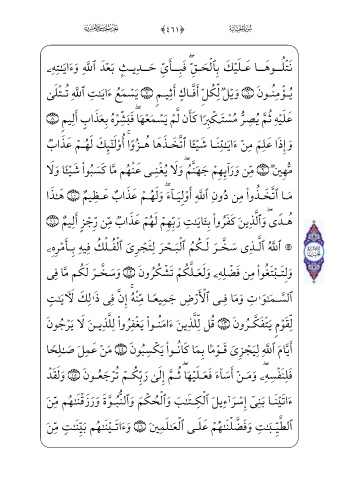 ﴿٤٦١﴾
نَتْلُوهَا عَلَيْكَ بِالْحَقِّ فَبِأَيِّ حَدِيثٍ بَعْدَ اللَّهِ وَءَايَٰتِهِۦ
يُؤْمِنُونَ وَيْلٌ لِّكُلِّ أَفَّاكٍ أَثِيمٍ يَسْمَعُ ءَايَٰتِ اللَّهِ تُتْلَىٰ
عَلَيْهِ ثُمَّ يُصِرُّ مُسْتَكْبِرًا كَأَن لَّمْ يَسْمَعْهَا فَبَشِّرْهُ بِعَذَابٍ أَلِيمٍ
وَإِذَا عَلِمَ مِنْ ءَايَٰتِنَا شَيْـًٔا اتَّخَذَهَا هُزُوًا أُو۟لَٰٓئِكَ لَهُمْ عَذَابٌ
مُّهِينٌ مِّن وَرَآئِهِمْ جَهَنَّمُ وَلَا يُغْنِى عَنْهُم مَّا كَسَبُوا۟ شَيْـًٔا وَلَا
مَا اتَّخَذُوا۟ مِن دُونِ اللَّهِ أَوْلِيَآءَ وَلَهُمْ عَذَابٌ عَظِيمٌ هَٰذَا
هُدًى وَالَّذِينَ كَفَرُوا۟ بِـَٔايَٰتِ رَبِّهِمْ لَهُمْ عَذَابٌ مِّن رِّجْزٍ أَلِيمٌ
۞ اللَّهُ الَّذِى سَخَّرَ لَكُمُ الْبَحْرَ لِتَجْرِىَ الْفُلْكُ فِيهِ بِأَمْرِهِۦ
وَلِتَبْتَغُوا۟ مِن فَضْلِهِۦ وَلَعَلَّكُمْ تَشْكُرُونَ وَسَخَّرَ لَكُم مَّا فِى
السَّمَٰوَٰتِ وَمَا فِى الْأَرْضِ جَمِيعًا مِّنْهُ إِنَّ فِى ذَٰلِكَ لَـَٔايَٰتٍ
لِّقَوْمٍ يَتَفَكَّرُونَ قُل لِّلَّذِينَ ءَامَنُوا۟ يَغْفِرُوا۟ لِلَّذِينَ لَا يَرْجُونَ
أَيَّامَ اللَّهِ لِيَجْزِىَ قَوْمًۢا بِمَا كَانُوا۟ يَكْسِبُونَ مَنْ عَمِلَ صَٰلِحًا
فَلِنَفْسِهِۦ وَمَنْ أَسَآءَ فَعَلَيْهَا ثُمَّ إِلَىٰ رَبِّكُمْ تُرْجَعُونَ وَلَقَدْ
ءَاتَيْنَا بَنِىٓ إِسْرَٰٓءِيلَ الْكِتَٰبَ وَالْحُكْمَ وَالنُّبُوَّةَ وَرَزَقْنَٰهُم مِّنَ
الطَّيِّبَٰتِ وَفَضَّلْنَٰهُمْ عَلَى الْعَٰلَمِينَ وَءَاتَيْنَٰهُم بَيِّنَٰتٍ مِّنَ